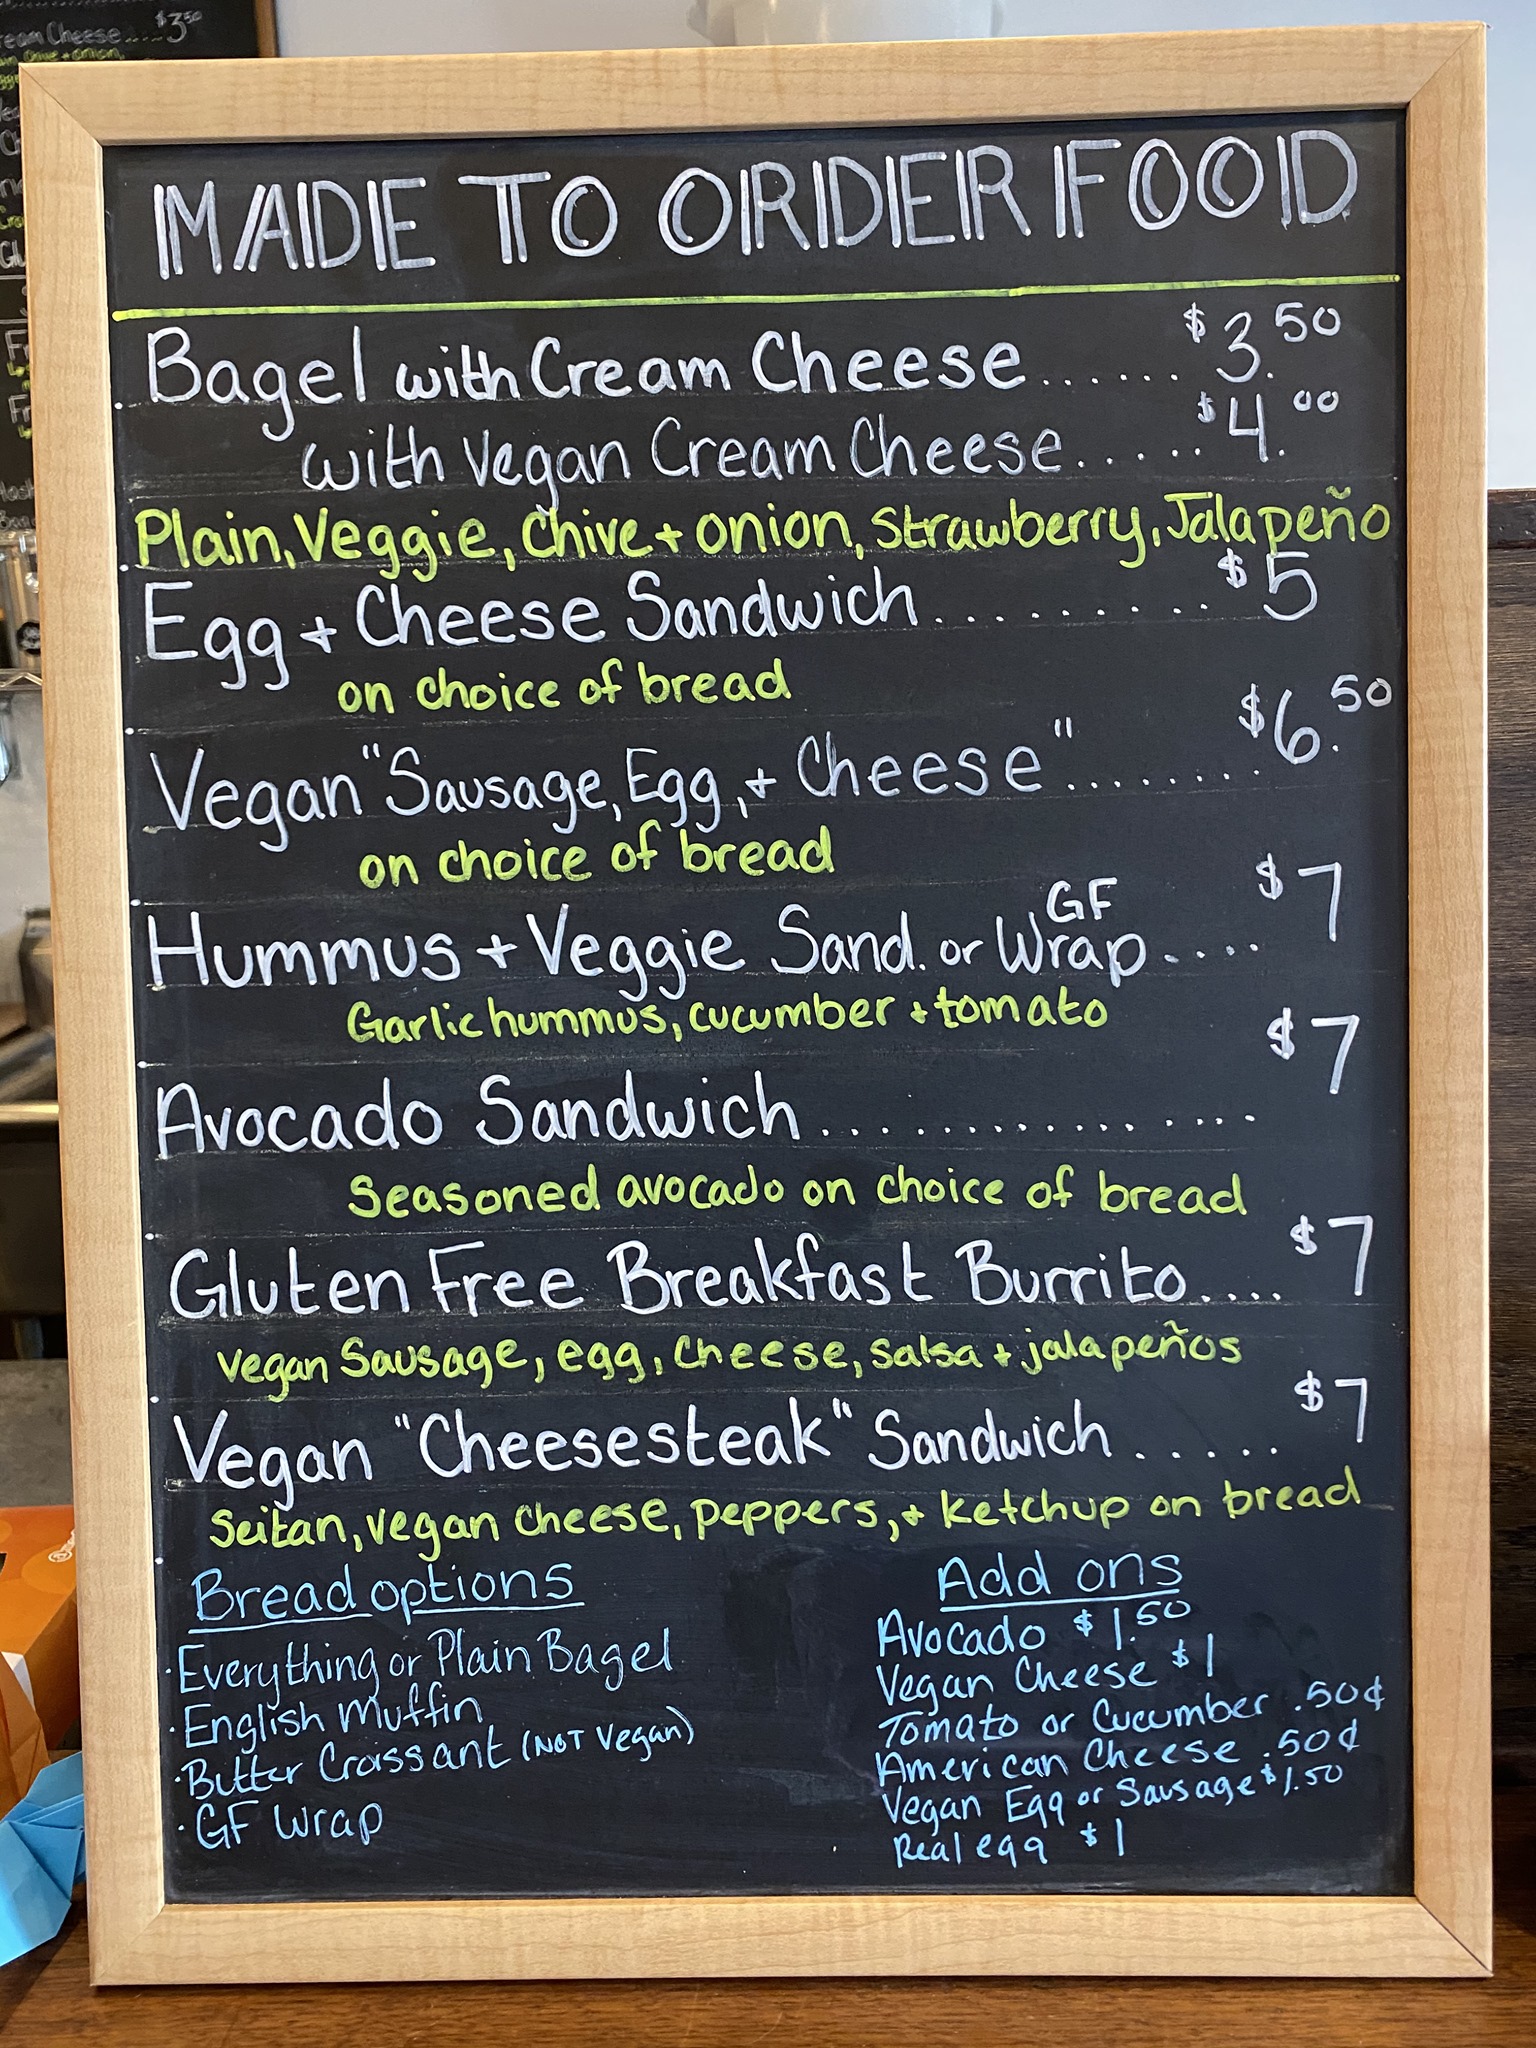 eam Cheese .... $3.50
MADE TO ORDER FOOD
Bagel with Cream Cheese ...... $3.50
with Vegan Cream Cheese ..... $4.00
Plain, Veggie, Chive + onion, Strawberry, Jalapeño
Egg + Cheese Sandwich ......... $5
on choice of bread
Vegan "Sausage, Egg, + Cheese" ........ $6.50
on choice of bread
Hummus + Veggie Sand. or GF Wrap .... $7
Garlic hummus, cucumber + tomato
Avocado Sandwich ............... $7
Seasoned avocado on choice of bread
Gluten Free Breakfast Burrito .... $7
vegan Sausage, egg, cheese, salsa + jalapeños
Vegan "Cheesesteak" Sandwich ..... $7
Seitan, vegan cheese, peppers, + ketchup on bread
Bread options
· Everything or Plain Bagel
· English Muffin
· Butter Croissant (NOT Vegan)
· GF Wrap
Add ons
Avocado $1.50
Vegan Cheese $1
Tomato or Cucumber .50¢
American Cheese .50¢
Vegan Egg or Sausage $1.50
Real egg $1